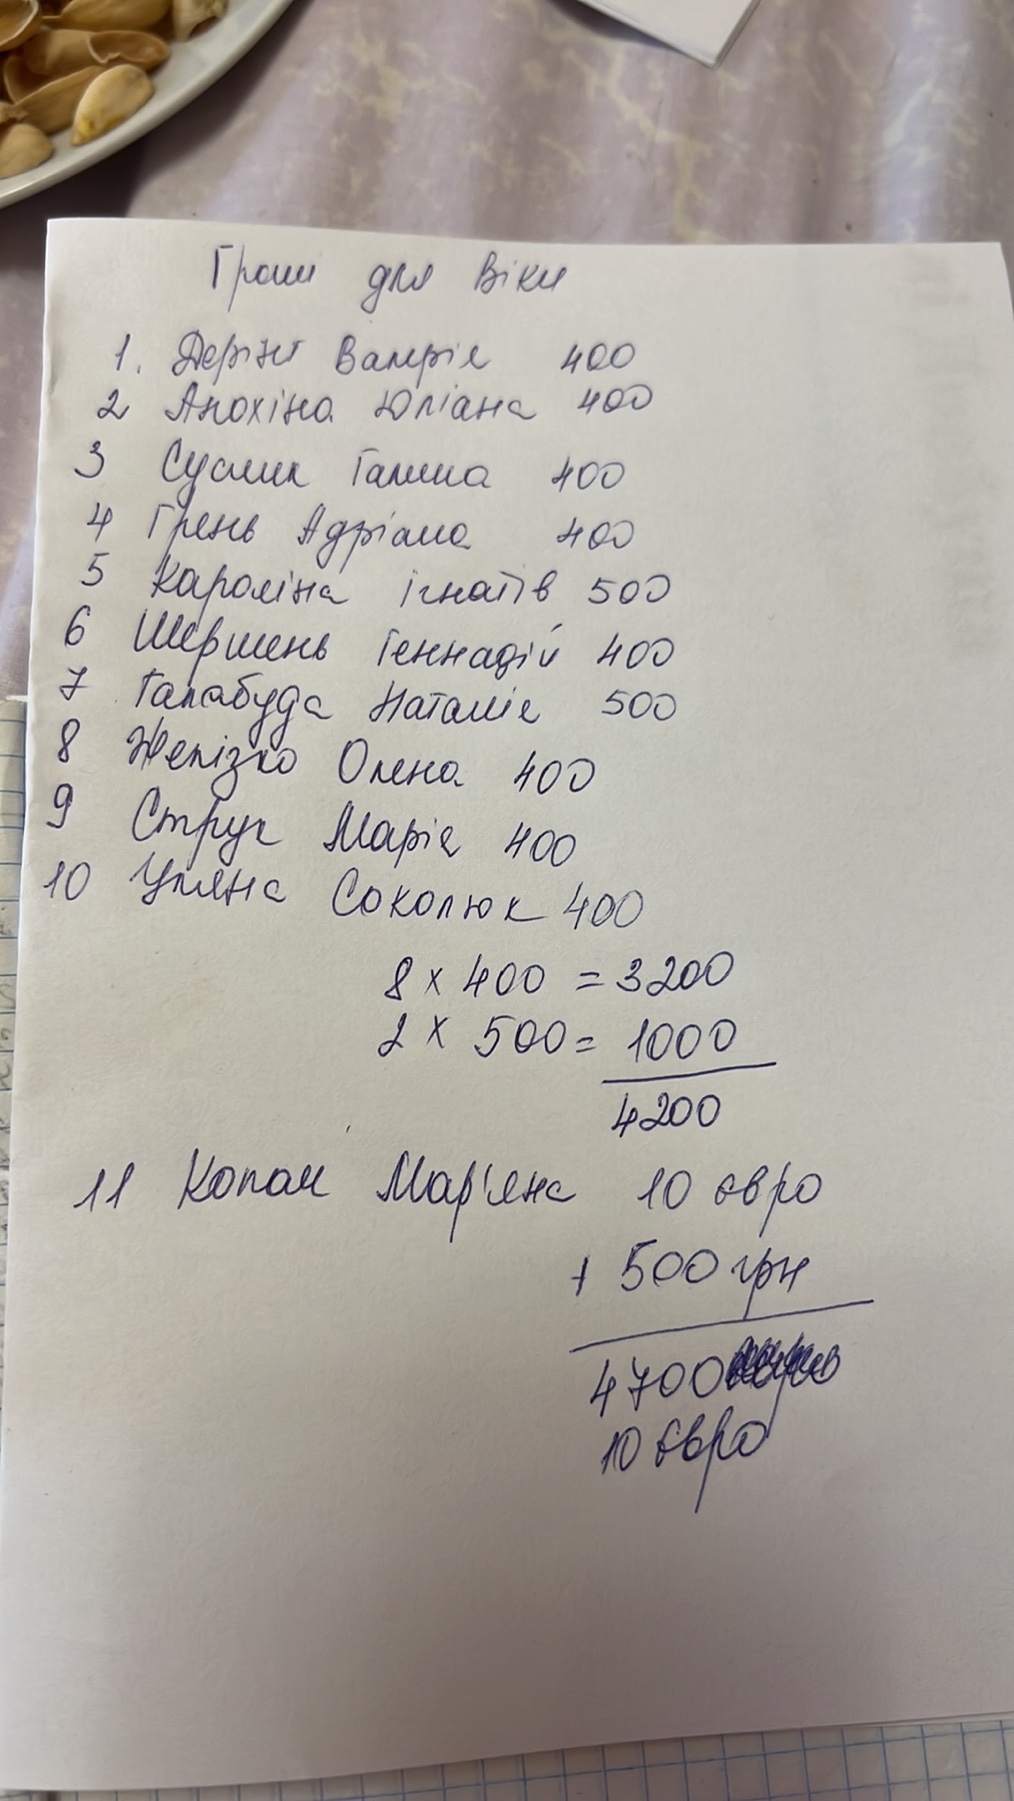 Гроші для Віки
1. Дерінг Валерія 400
2 Анохіна Юліана 400
3 Суслик Галина 400
4 Грень Адріана 400
5 Кароліна Ігнатів 500
6 Шершень Геннадій 400
7 Галабуда Наталія 500
8 Желізко Олена 400
9 Струк Марія 400
10 Уляна Соколюк 400
8 x 400 = 3200
2 x 500 = 1000
4200
11 Копач Мар'яна 10 євро
+ 500 грн
4700
10 євро